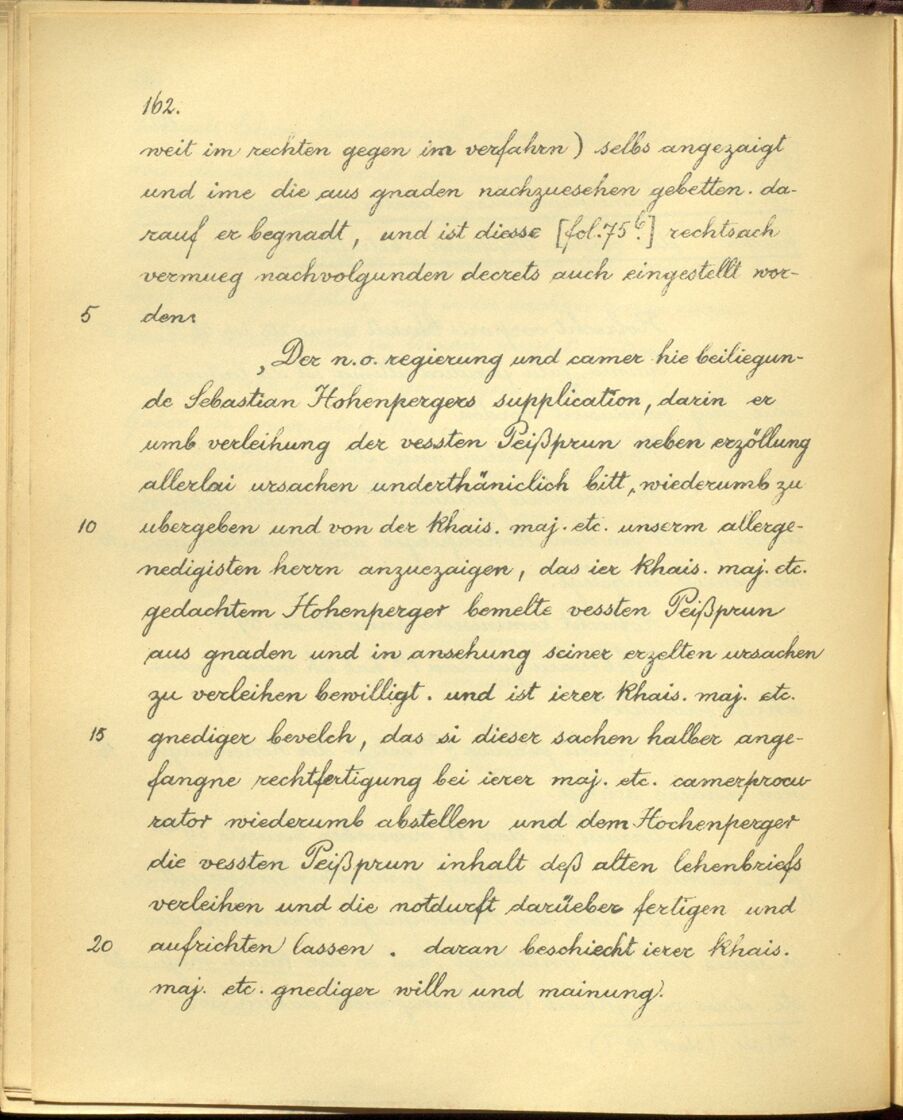 162.
weit im rechten gegen im verfahrn) selbs angezaigt
und ime die aus gnaden nachzuesehen gebetten. da-
rauf er begnadt, und ist diesse [fol. 75b.] rechtsach
vermueg nachvolgunden decrets auch eingestellt wor-
5 den:
„Der n.o. regierung und camer hie beiliegun-
de Sebastian Hohenpergers supplication, darin er
umb verleihung der vessten Peißprun neben erzöllung
allerlai ursachen underthäniclich bitt, wiederumb zu
10 ubergeben und von der khais. maj. etc. unserm allerge-
nedigisten herrn anzuezaigen, das ier khais. maj. etc.
gedachtem Hohenperger bemelte vessten Peißprun
aus gnaden und in ansehung seiner erzelten ursachen
zu verleihen bewilligt. und ist ierer khais. maj. etc.
15 gnediger bevelch, das si dieser sachen halber ange-
fangne rechtfertigung bei ierer maj. etc. camerprocu-
rator wiederumb abstellen und dem Hochenperger
die vessten Peißprun inhalt deß alten lehenbriefs
verleihen und die notdurft darüeber fertigen und
20 aufrichten lassen. daran beschiecht ierer khais.
maj. etc. gnediger willn und mainung.'